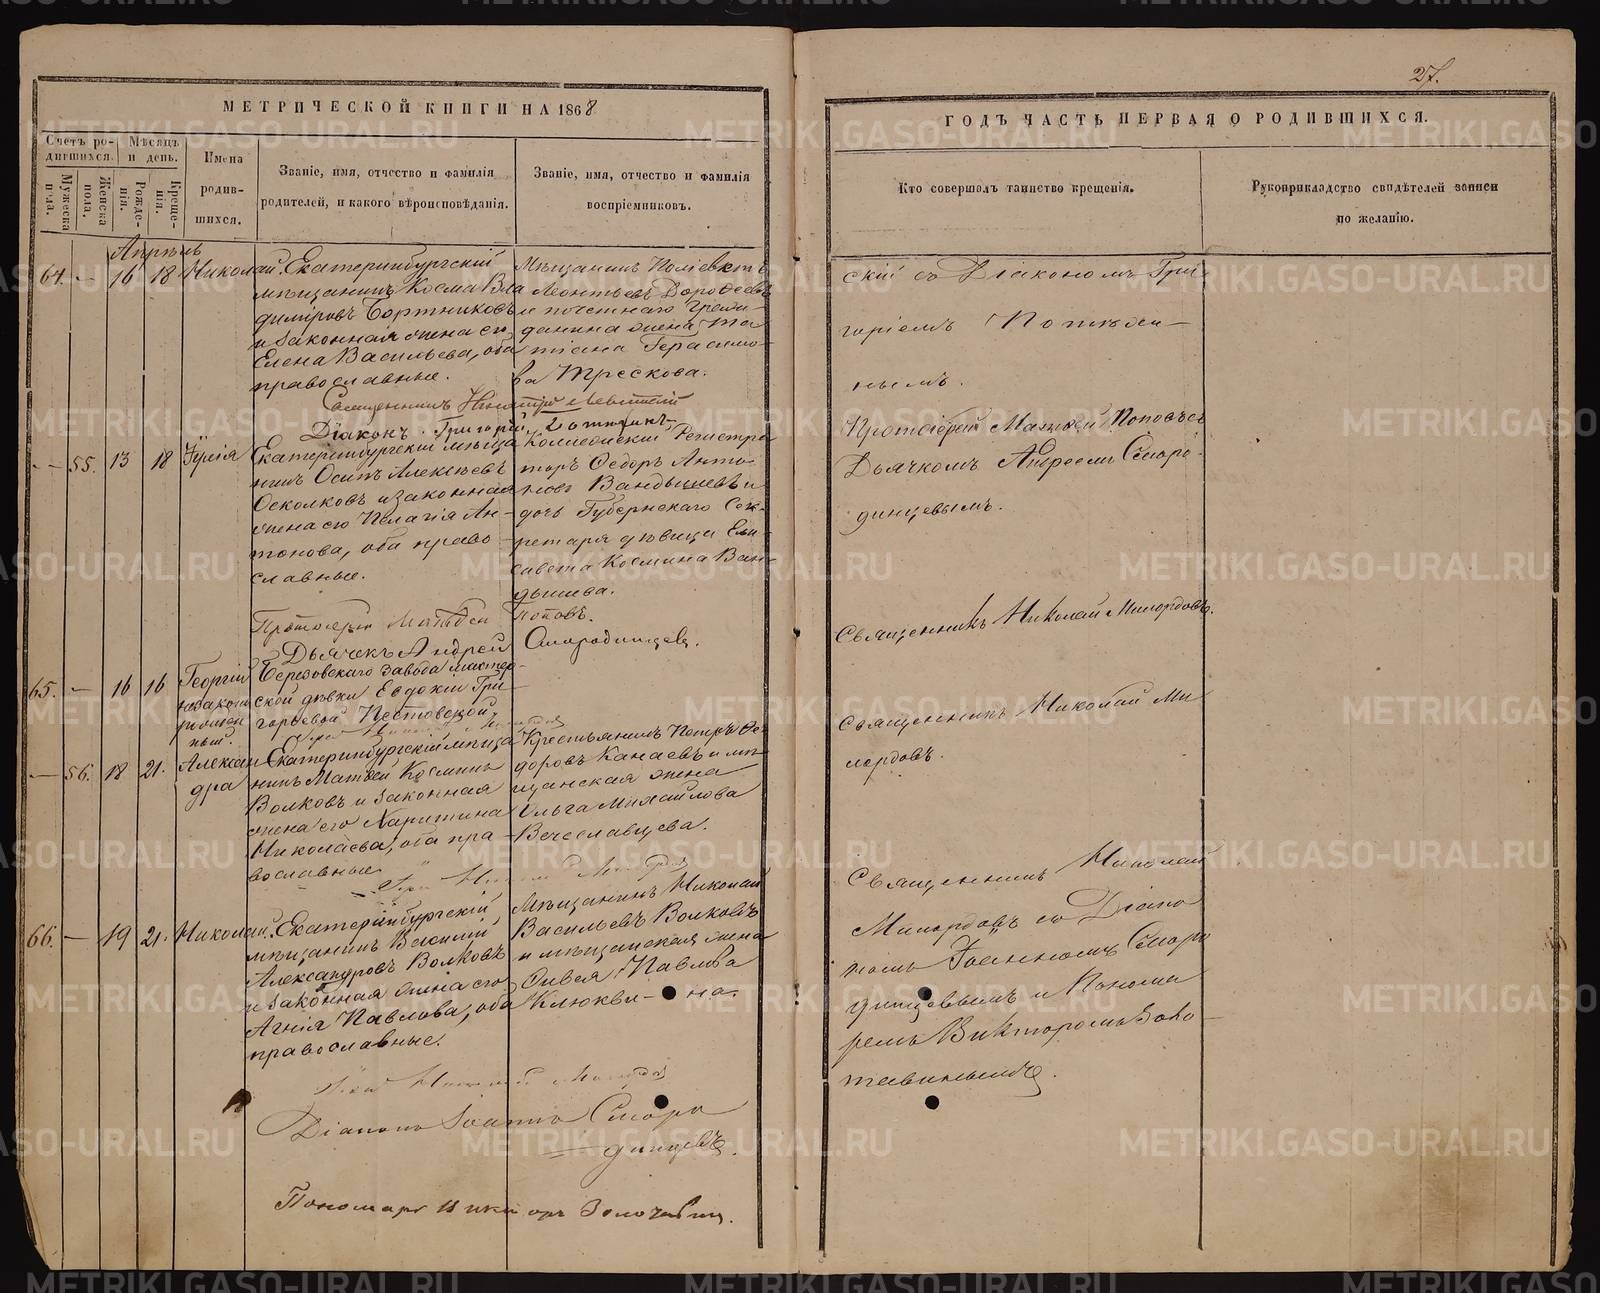 27.
МЕТРИЧЕСКОЙ КНИГИ НА 1868
ГОДЪ ЧАСТЬ ПЕРВАЯ О РОДИВШИХСЯ.
Счетъ ро-
дившихся.
Мѣсяцъ
и день.
Мужеска
пола.
Женска
пола.
Рожде-
нія.
Креще-
нія.
Имена
родив-
шихся.
Званіе, имя, отчество и фамилія
родителей, и какого вѣроисповѣданія.
Званіе, имя, отчество и фамилія
воспріемниковъ.
Кто совершалъ таинство крещенія.
Рукоприкладство свидѣтелей записи
по желанію.
Апрѣль
64. — 16 18 Николай.
Екатеринбургскій
мѣщанинъ Косма Вла
диміровъ Бортниковъ
и законная жена его
Елена Васильева, оба
православные.
Мѣщанинъ Поліевктъ
Леонтьевъ Дорофеевъ
и почетнаго граж
данина жена Та
тіана Герасимо-
ва Трескова.
скій съ Діакономъ Гри
горіемъ
нымъ.
Священникъ
Діаконъ Григорій
— 55. 13 18 Юлія
Екатеринбургскій мѣща
нинъ Осипъ Алексѣевъ
Осколковъ и законная
жена его Пелагія Ан-
тонова, оба право
славные.
Коллежскій Регистра
торъ Федоръ Анто
новъ Вандышевъ и
дочь Губернскаго Сек-
ретаря дѣвица Ели
савета Космина Ван-
дышева.
Протоіерей Матвей Поповъ съ
Дьячкомъ Андреемъ Сморо-
динцевымъ.
Протоіерей Матвей Поповъ.
Дьячекъ Андрей Смородинцевъ.
65. — 16 16 Георгій
незакон
рожден
ный.
Березовскаго завода мастер-
ской дѣвки Евдокіи Гри-
горьевой Пестовской
Священникъ Николай Милордовъ.
— 56. 18 21. Алексан
дра
Екатеринбургскій мѣща
нинъ Матвей Космин
Волковъ и законная
жена его Харитина
Николаева, оба пра-
вославные
Крестьянинъ Петръ Ѳе
доровъ Канаевъ и мѣ
щанская жена
Ольга Михайлова
Вечеславцева.
Священникъ Николай Ми
лордовъ.
66. — 19 21. Николай.
Екатеринбургскій
мѣщанинъ Василій
Александровъ Волковъ
и законная жена его
Агнія Павлова, оба
православные.
Мѣщанинъ Николай
Васильевъ Волковъ
и мѣщанская жена
Павлова
Клюкви- на.
Священникъ Николай
Милордовъ съ Діако
номъ Іоанномъ Сморо
динцевымъ и Понома
ремъ Викторомъ Золо-
тавинымъ.
Діаконъ Іоаннъ Сморо
динцевъ.
Пономарь Викторъ Золотавин.
METRIKI.GASO-URAL.RU